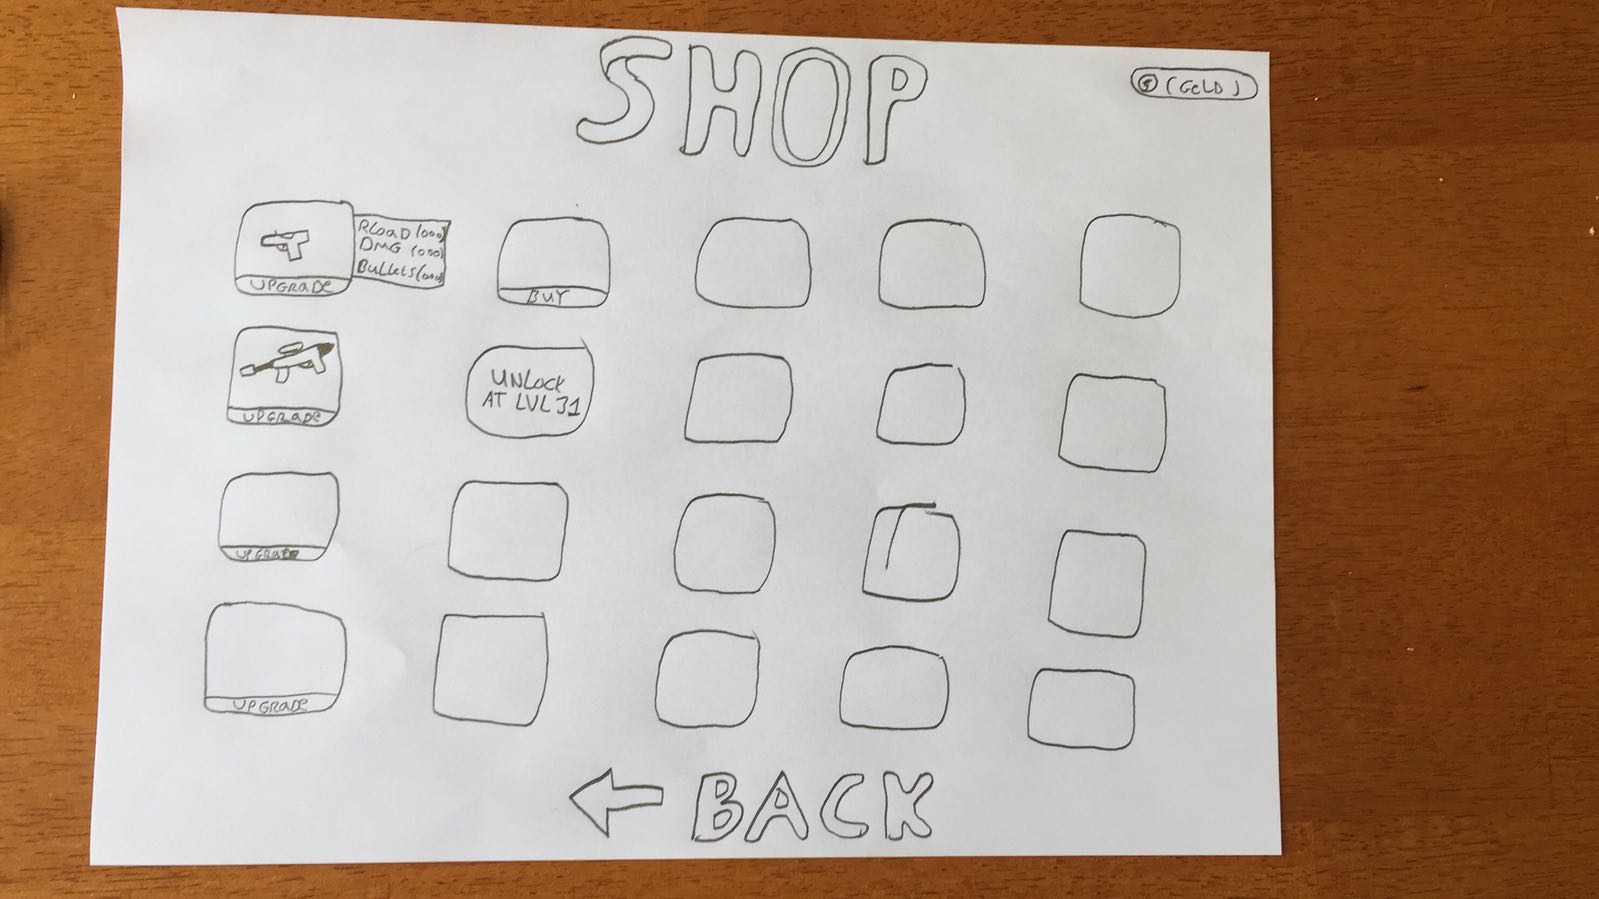 SHOP
$ (GOLD)
RLOAD (000)
DMG (000)
Bullets (000)
UPGRADE
BUY
UPGRADE
UNLOCK
AT LVL 31
UPGRADE
UPGRADE
BACK